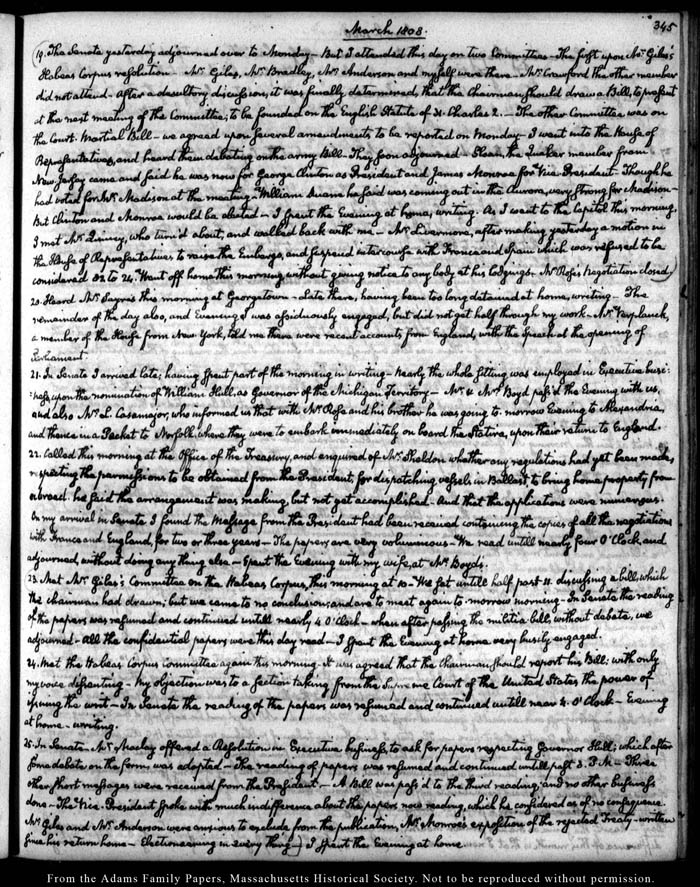 March 1808.
345
19. The Senate yesterday adjourned over to Monday — But I attended this day on two Committees — The first upon Mr. Giles's
Habeas Corpus resolution — Mr. Giles, Mr. Bradley, Mr. Anderson and myself were there — Mr. Crawford the other member
did not attend — After a desultory discussion, it was finally determined, that the Chairman should draw a Bill, to present
at the next meeting of the Committee; to be founded on the English Statute of 31. Charles 2. — The other Committee was on
the Court-Martial Bill — we agreed upon several amendments to be reported on Monday — I went into the House of
Representatives, and heard them debating on the army Bill — They soon adjourned — Sloan, the Quaker member from
New Jersey came and said he was now for George Clinton as President and James Monroe for Vice-President — Though he
had voted for Mr. Madison at the meeting — William Duane he said was coming out in the Aurora, very strong for Madison —
But Clinton and Monroe would be elected — I spent the Evening at home, writing. As I went to the Capitol this morning,
I met Mr. Quincy, who turn'd about, and walked back with me — Mr. Livermore, after making yesterday a motion in
the House of Representatives to raise the Embargo, and suspend intercourse with France and Spain which was refused to be
considered 82 to 24. Went off home this morning without giving notice to any body at his lodgings. Mr. Rose's Negotiation closed.
20. Heard Mr. Sayrs this morning at Georgetown — Late there, having been too long detained at home, writing — The
remainder of the day also, and Evening I was assiduously engaged, but did not get half through my work. Mr. Verplanck,
a member of the House from New York, told me there were recent accounts from England, with the speech at the opening of
Parliament.
21. In Senate I arrived late; having spent part of the morning in writing — Nearly the whole sitting was employed in Executive busi-
ness upon the nomination of William Hull, as Governor of the Michigan Territory — Mr. & Mrs. Boyd pass'd the Evening with us,
and also Mr. L. Casamajor, who informed us that with Mr. Rose and his brother he was going to-morrow Evening to Alexandria,
and thence in a Packet to Norfolk, where they were to embark immediately on board the Statira, upon their return to England.
22. Called this morning at the Office of the Treasury, and enquired of Mr. Sheldon whether any regulations had yet been made,
respecting the permissions to be obtained from the President, for dispatching vessels in Ballast, to bring home property from
abroad. he said the arrangement was making, but not yet accomplished — And that the applications were numerous.
On my arrival in Senate I found the Message from the President had been received containing the copies of all the negotiations
with France and England, for two or three years — The papers are very voluminous — We read untill nearly four O'Clock, and
adjourned, without doing any thing else — Spent the Evening with my wife, at Mr. Boyd's.
23. Met Mr. Giles's Committee on the Habeas Corpus, this morning at 10 — We sat untill half past 11. discussing a bill, which
the chairman had drawn; but we came to no conclusion; and are to meet again to-morrow morning — In Senate the reading
of the papers was resumed and continued untill nearly 4 O'Clock — when after passing the militia bill, without debate, we
adjourned — All the confidential papers were this day read — I spent the Evening at home very busily engaged.
24. Met the Habeas Corpus committee again this morning — It was agreed that the Chairman should report his Bill; with only
my voice dissenting — My objection was to a section taking from the Supreme Court of the United States the power of
issuing the writ — In Senate the reading of the papers was resumed and continued untill near 4. O'Clock — Evening
at home — writing.
25. In Senate — Mr. Maclay offered a Resolution in Executive business, to ask for papers respecting Governor Hull; which after
some debate on the form was adopted — The reading of papers was resumed and continued untill past 3. P.M — Three
other short messages were received from the President — A Bill was pass'd to the third reading; and no other business
done — The Vice-President spoke with much indifference about the papers now reading, which he considered as of no consequence.
Mr. Giles and Mr. Anderson were anxious to exclude from the publication, Mr. Monroe's exposition of the rejected Treaty — written
since his return home — Electioneering in every thing — I spent the Evening at home.
From the Adams Family Papers, Massachusetts Historical Society. Not to be reproduced without permission.